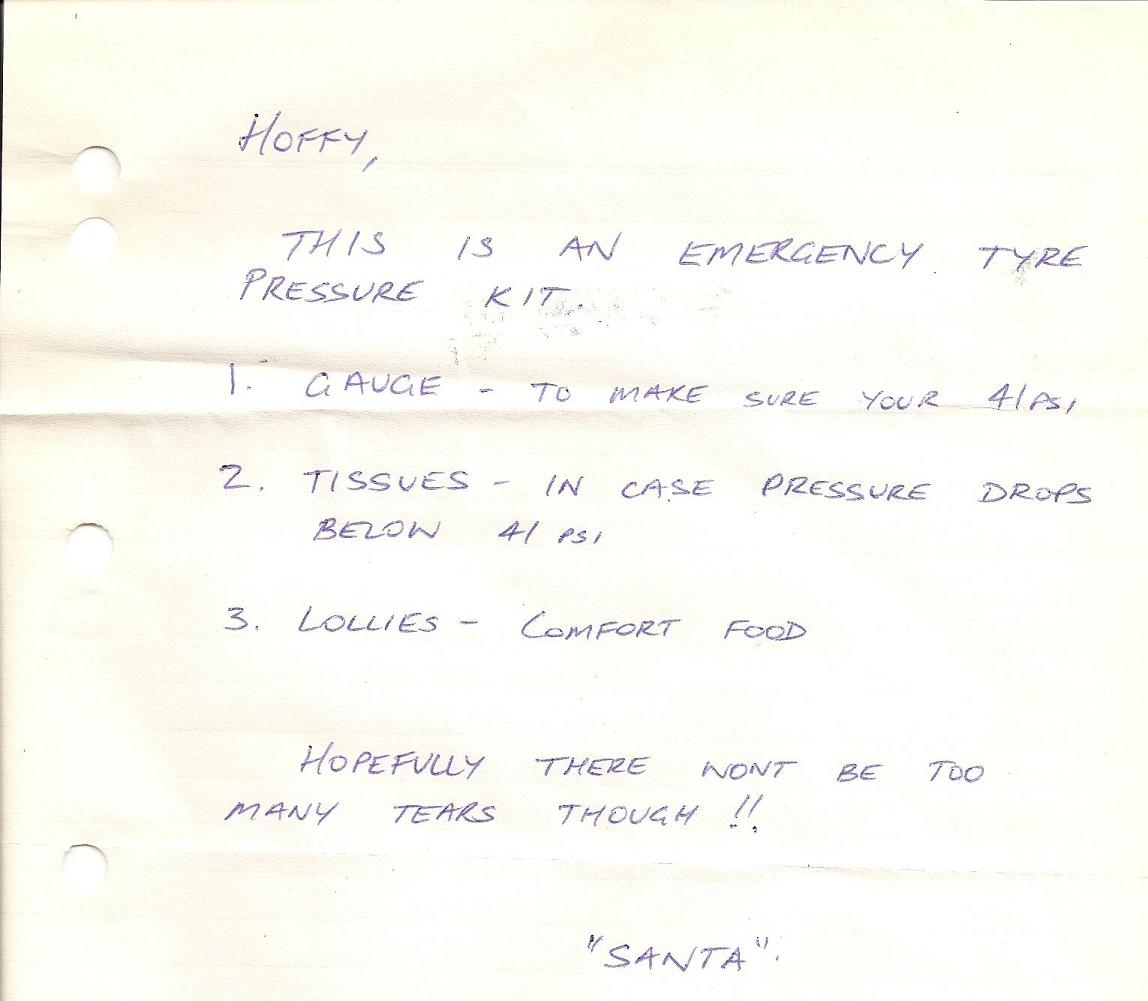 HOFFY,
THIS IS AN EMERGENCY TYRE
PRESSURE KIT.
1. GAUGE - TO MAKE SURE YOUR 41 PSI
2. TISSUES - IN CASE PRESSURE DROPS
BELOW 41 PSI
3. LOLLIES - COMFORT FOOD
HOPEFULLY THERE WONT BE TOO
MANY TEARS THOUGH !!
"SANTA".